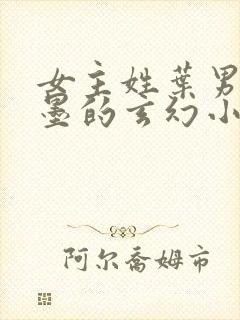 女主姓葉男
墨的玄幻小
阿尔喬姆市